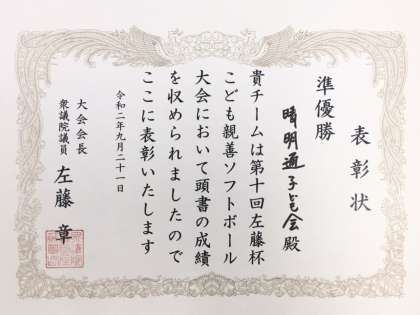 表彰状
準優勝
晴明通子ども会殿
貴チームは第十回左藤杯
こども親善ソフトボール
大会において頭書の成績
を収められましたので
ここに表彰いたします
令和二年九月二十一日
大会会長
衆議院議員
左藤章